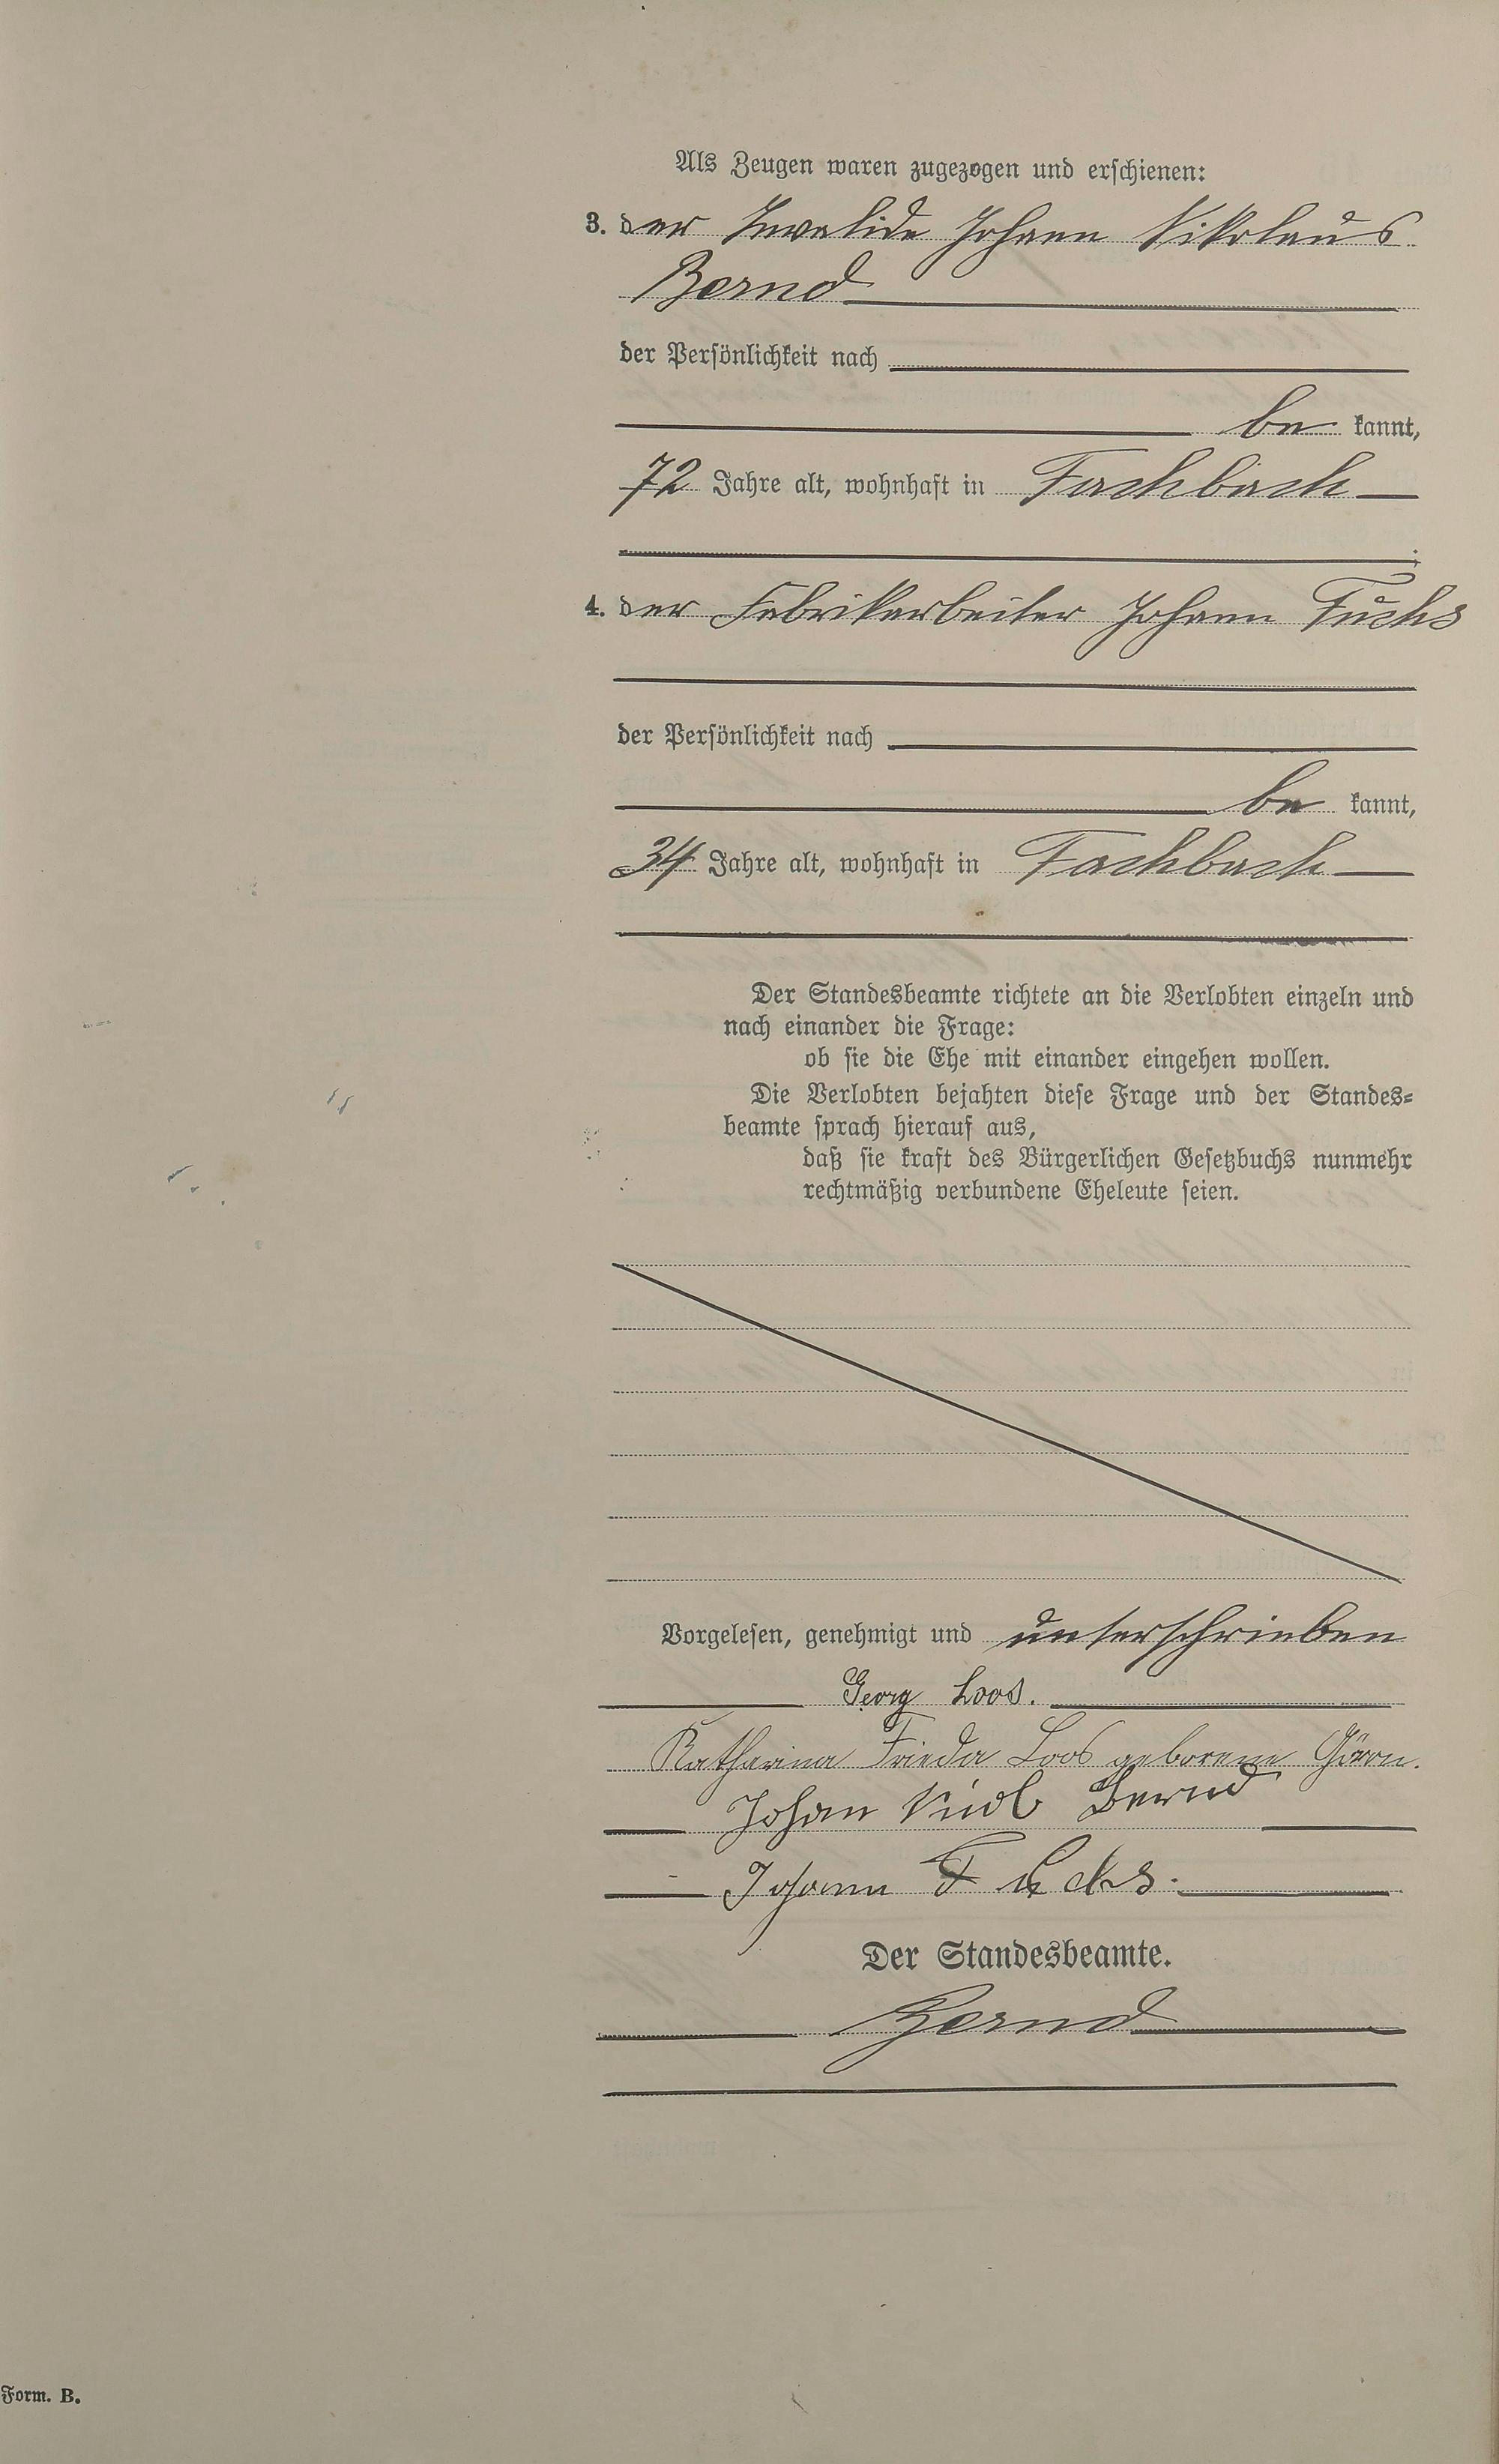 Als Zeugen waren zugezogen und erschienen:
3. der Invalide Johann Nikolaus
Bernd
der Persönlichkeit nach
be kannt,
72 Jahre alt, wohnhaft in Fachbach
4. der Fabrikarbeiter Johann Fuchs
der Persönlichkeit nach
be kannt,
34 Jahre alt, wohnhaft in Fachbach
Der Standesbeamte richtete an die Verlobten einzeln und
nach einander die Frage:
ob sie die Ehe mit einander eingehen wollen.
Die Verlobten bejahten diese Frage und der Standes-
beamte sprach hierauf aus,
daß sie kraft des Bürgerlichen Gesetzbuchs nunmehr
rechtmäßig verbundene Eheleute seien.
Vorgelesen, genehmigt und unterschrieben
Georg Loos.
Katharina Frieda Loos geborene
Johan Bernd
Johann Fuchs.
Der Standesbeamte.
Bernd
Form. B.